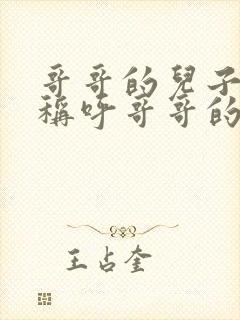 哥哥的兒子
稱呼哥哥的
王占奎